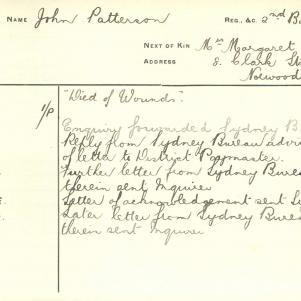 NAME John Patterson REG., &C. 2nd B
NEXT OF KIN Mrs Margaret
ADDRESS 8. Clark St
Norwood
1/P "Died of Wounds".
Enquiry forwarded Sydney B
Reply from Sydney Bureau advi
of letter to District Paymaster.
Further letter from Sydney Burea
therein sent Inquirer
Letter of acknowledgement sent Sy
Later letter from Sydney Burea
therein sent Inquirer